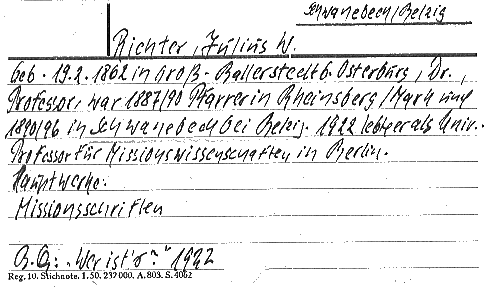 Schwanebeck/Belzig
Richter, Julius W.
geb. 19.2.1862 in Groß-Ballerstedt b. Osterburg, Dr.,
Professor, war 1887/90 Pfarrer in Rheinsberg/Mark und
1890/96 in Schwanebeck bei Belzig. 1922 lebt er als Univ.-
Professor für Missionswissenschaften in Berlin.
Hauptwerke:
Missionsschriften
B.Q: "Wer ist's?" 1922
Reg. 10. Stichnote. 1. 50. 237000. A. 803. S. 4062